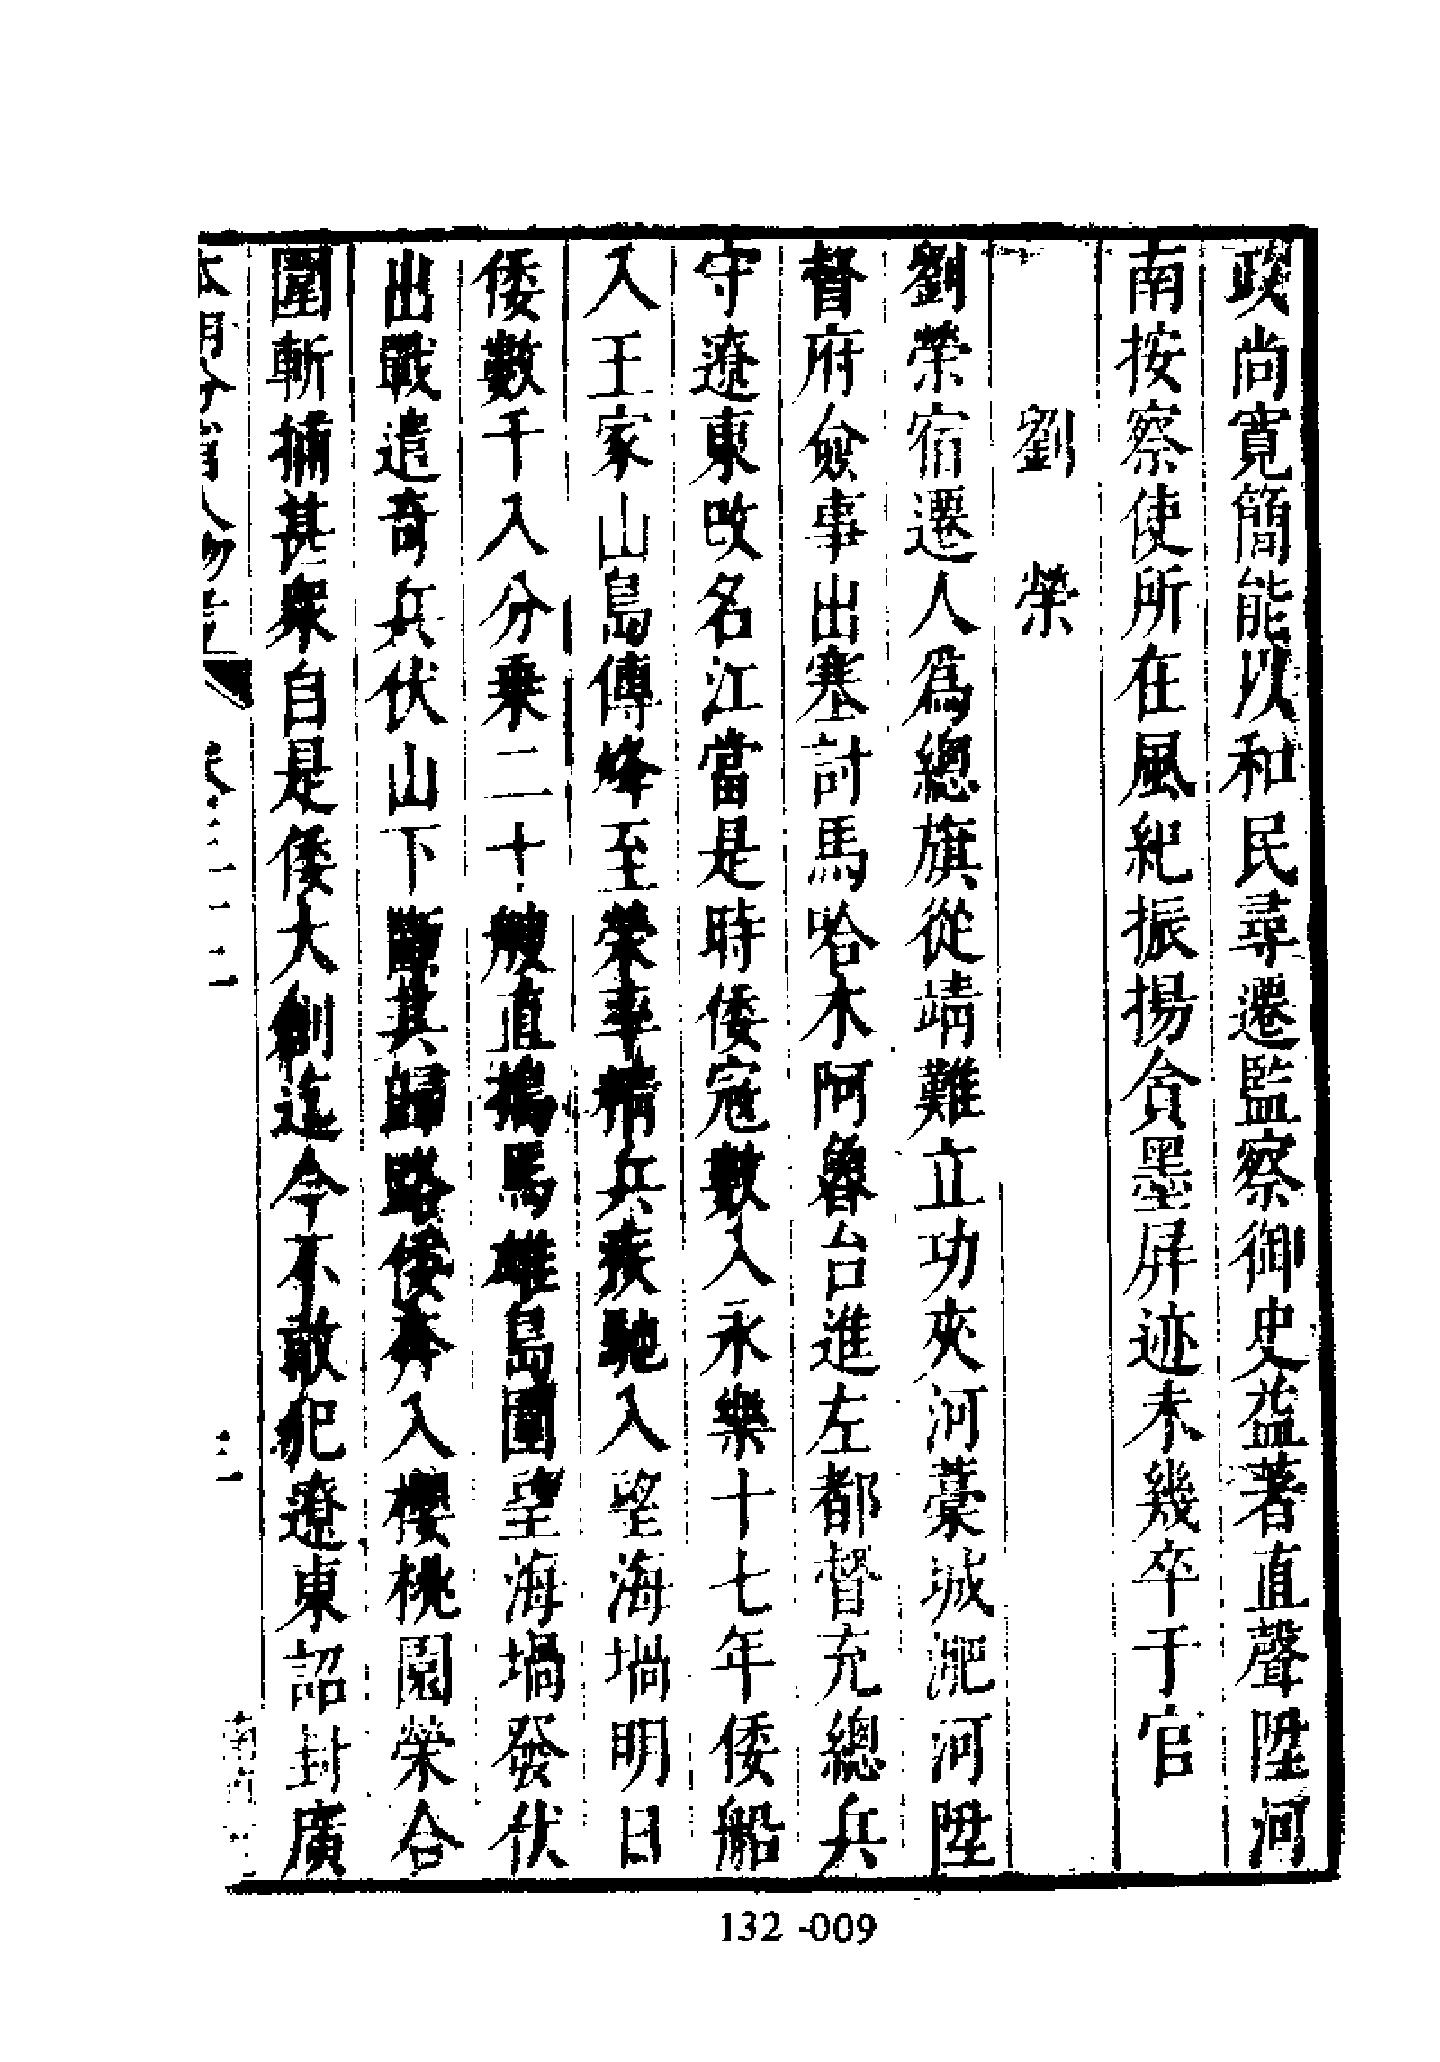 政尚寛簡能以和民尋遷監察御史益著直聲陞河
南按察使所在風紀振揚貪墨屛迹未幾卒于官
劉榮
劉榮宿遷人爲總旗從靖難立功夾河藁城淝河陞
督府僉事出塞討馬哈木阿魯台進左都督充總兵
守遼東改名江當是時倭寇數入永樂十七年倭船
入王家山島傳烽至榮率精兵疾馳入望海堝明日
倭數千入分乗二十艘直搗馬雄島圍望海堝發伏
出戰遣奇兵伏山下斷其歸路倭奔入櫻桃園榮合
圍斬捕甚衆自是倭大創迄今不敢犯遼東詔封廣
本朝分省人物考
卷三十二
三
132-009